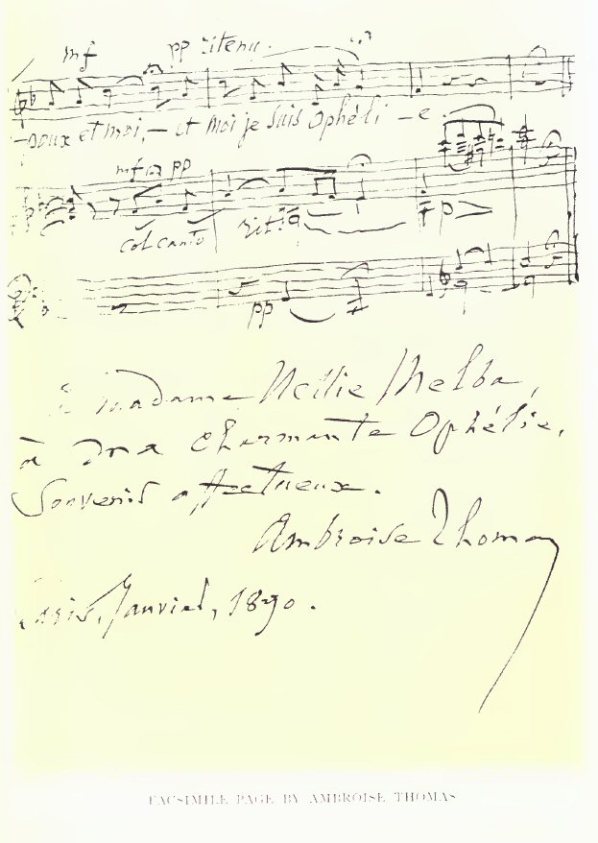 mf pp ritenu.
-doux et moi, – et moi je suis Ophéli – e.
mf pp
col canto rit: p
pp
à madame Nellie Melba,
à ma charmante Ophélie,
Souvenir affectueux.
Ambroise Thomas
Paris, Janvier, 1890.
FACSIMILE PAGE BY AMBROISE THOMAS